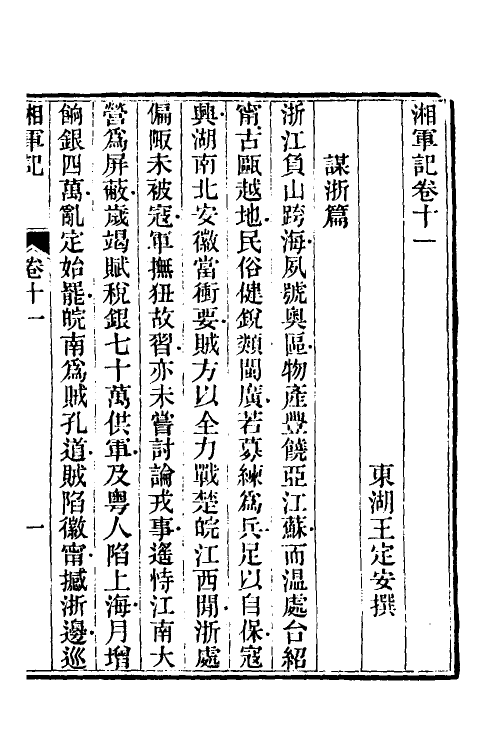 湘軍記卷十一
東湖王定安撰
謀浙篇
浙江負山跨海夙號奧區物產豐饒亞江蘇而溫處台紹
甯古甌越地民俗健銳類閩廣若募練爲兵足以自保寇
興湖南北安徽當衝要賊方以全力戰楚皖江西閒浙處
偏陬未被寇軍撫狃故習亦未嘗討論戎事遙恃江南大
營爲屏蔽歲竭賦稅銀七十萬供軍及粵人陷上海月增
餉銀四萬亂定始罷皖南爲賊孔道賊陷徽甯撼浙邊巡
湘軍記
卷十一
一